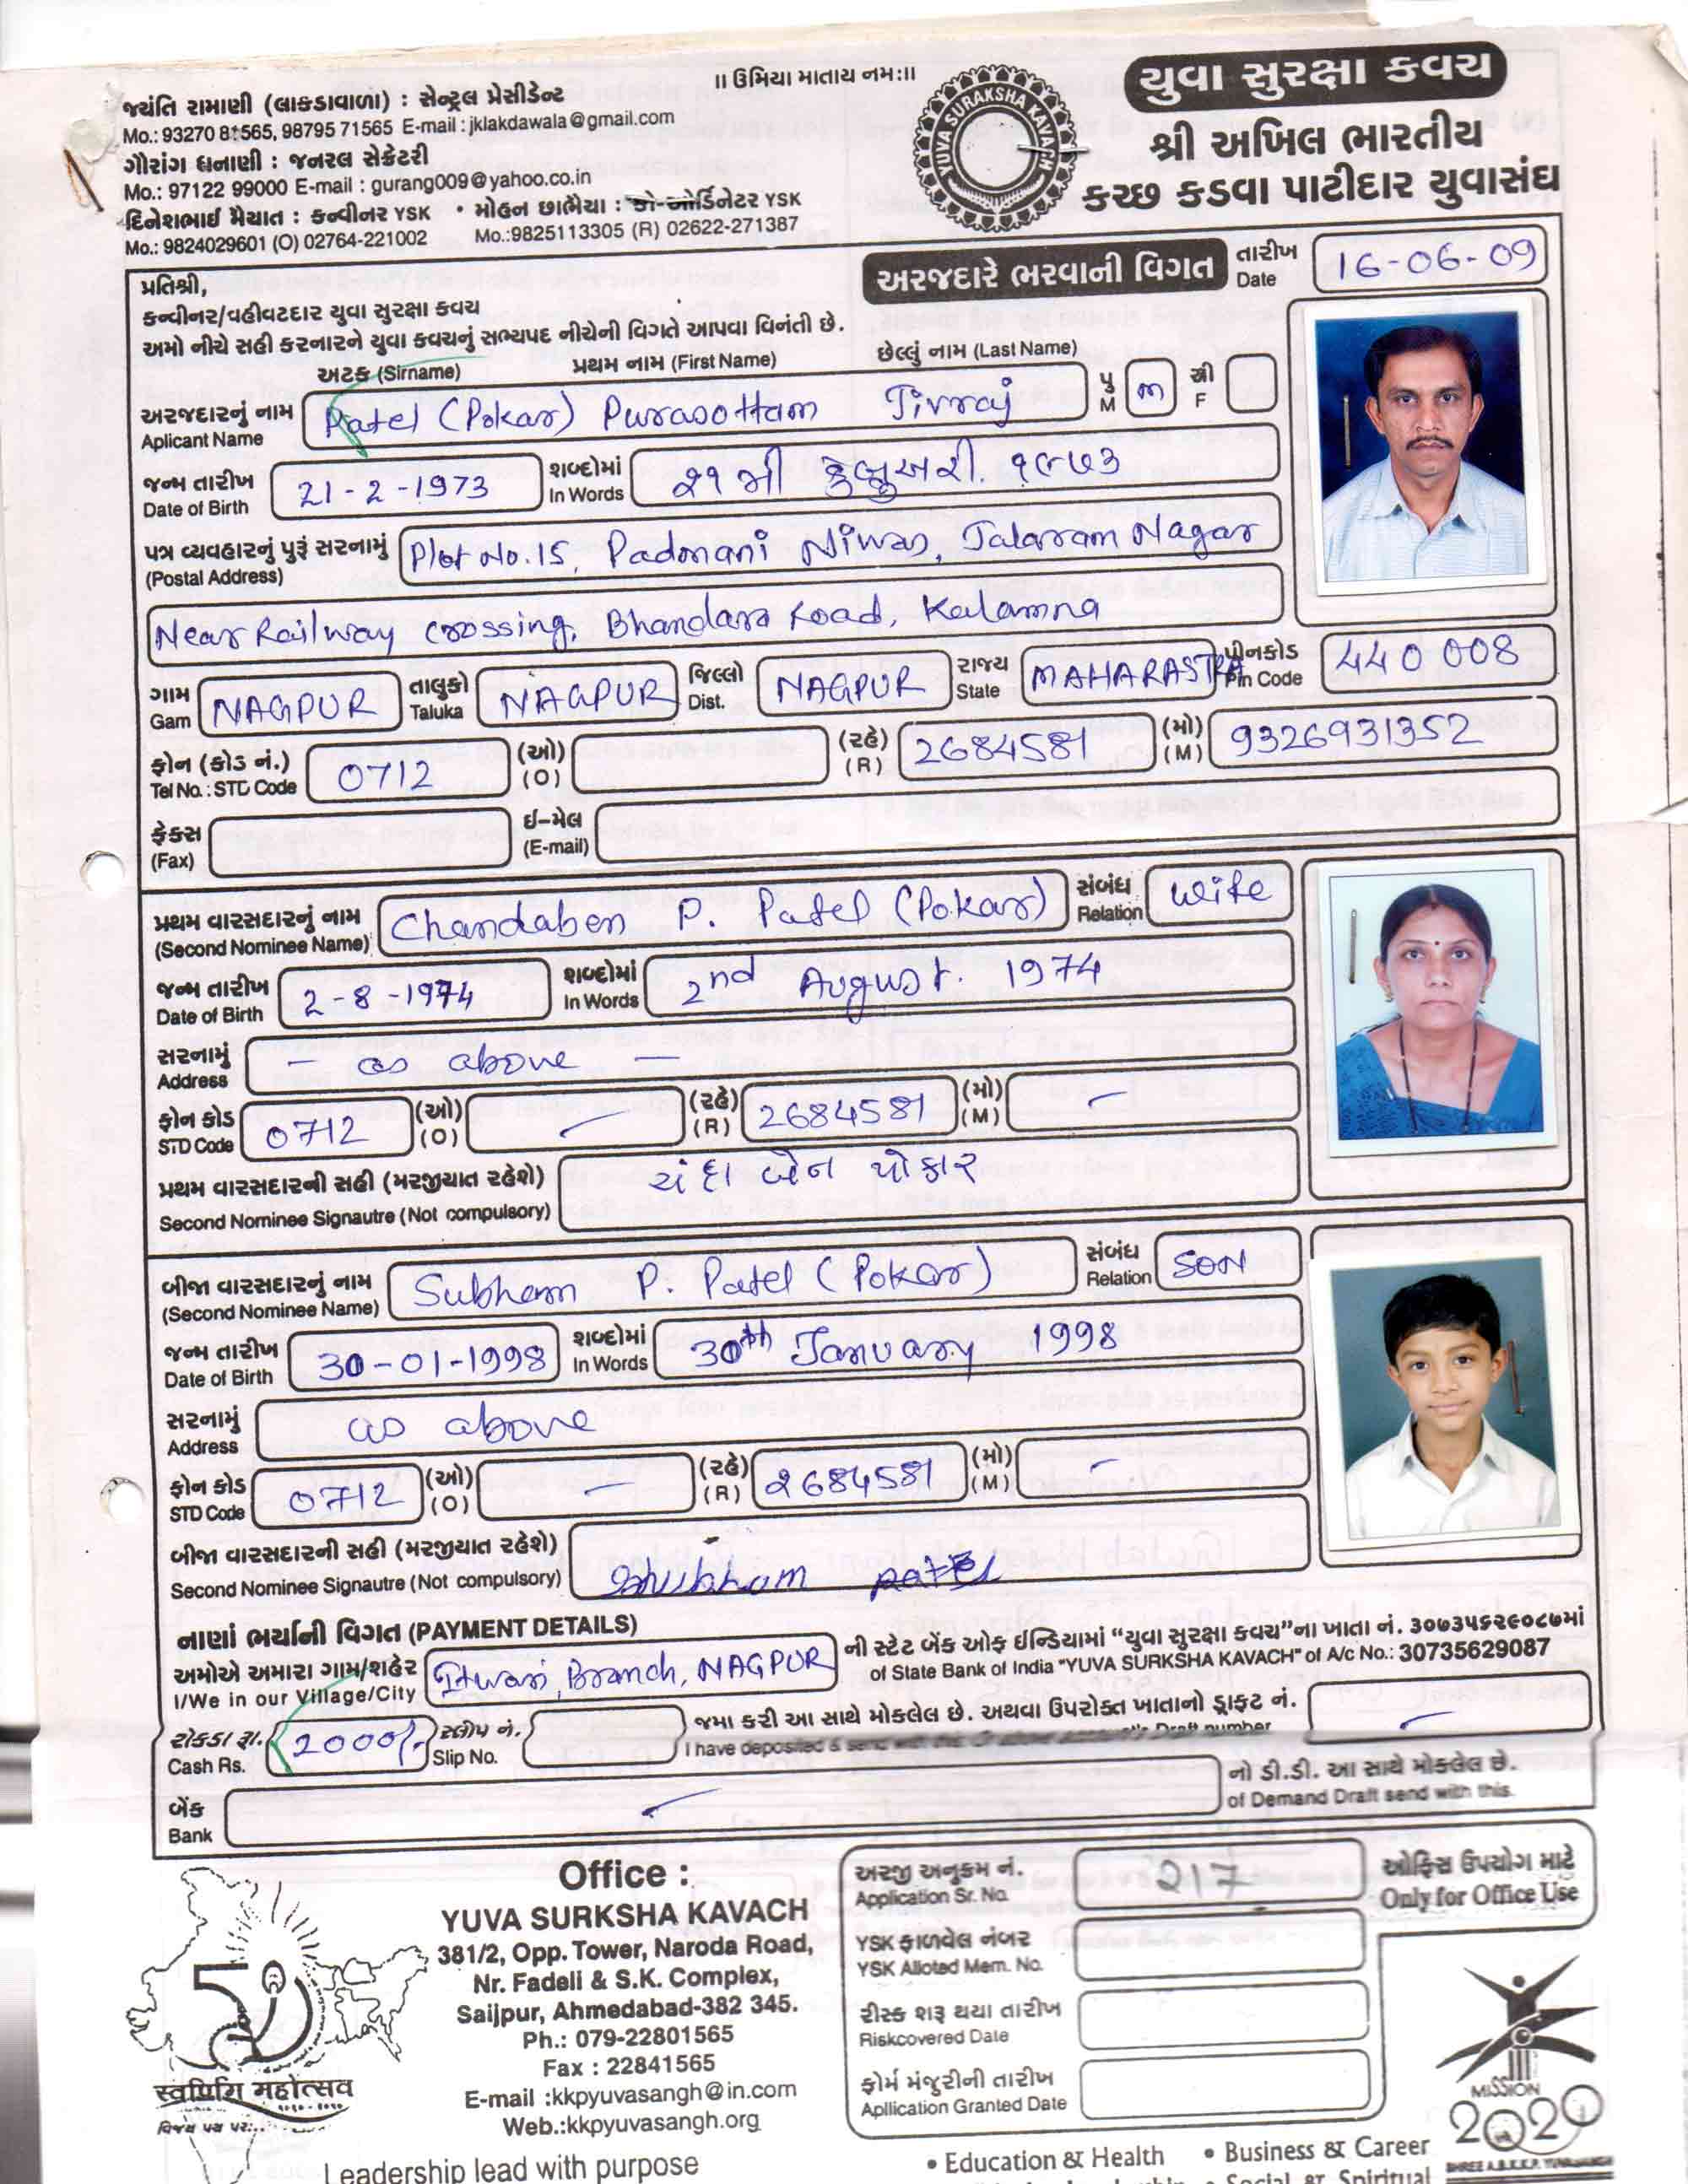 ॥ ઉમિયા માતાય નમ:॥
જયંતિ રામાણી (લાકડાવાળા) : સેન્ટ્રલ પ્રેસીડેન્ટ
Mo.: 93270 81565, 98795 71565 E-mail : jklakdawala@gmail.com
ગૌરાંગ ધનાણી : જનરલ સેક્રેટરી
Mo.: 97122 99000 E-mail : gurang009@yahoo.co.in
દિનેશભાઈ મૈયાત : કન્વીનર YSK • મોહન છાભૈયા : કો-ઓર્ડિનેટર YSK
Mo.: 9824029601 (O) 02764-221002 Mo.:9825113305 (R) 02622-271387
YUVA SURAKSHA KAVACH
યુવા સુરક્ષા કવચ
શ્રી અખિલ ભારતીય
કચ્છ કડવા પાટીદાર યુવાસંઘ
અરજદારે ભરવાની વિગત તારીખ Date 16-06-09
પ્રતિશ્રી,
કન્વીનર/વહીવટદાર યુવા સુરક્ષા કવચ
અમો નીચે સહી કરનારને યુવા કવચનું સભ્યપદ નીચેની વિગતે આપવા વિનંતી છે.
અટક (Sirname) પ્રથમ નામ (First Name) છેલ્લું નામ (Last Name)
અરજદારનું નામ Aplicant Name Patel (Pokar) Purasottam Jivraj પુ M m સ્ત્રી F
જન્મ તારીખ Date of Birth 21-2-1973 શબ્દોમાં In Words ૨૧ મી ફેબ્રુઅરી. ૧૯૭૩
પત્ર વ્યવહારનું પુરૂં સરનામું (Postal Address) Plot No.15, Padmani Niwas, Jalaram Nagar
Near Railway crossing, Bhandara Road, Kalamna
ગામ Gam NAGPUR તાલુકો Taluka NAGPUR જિલ્લો Dist. NAGPUR રાજ્ય State MAHARASTRA પીનકોડ Pin Code 440 008
ફોન (કોડ નં.) Tel No. : STD Code 0712 (ઓ) (O) (રહે) (R) 2684581 (મો) (M) 9326931352
ફેક્સ (Fax) ઈ-મેલ (E-mail)
પ્રથમ વારસદારનું નામ (Second Nominee Name) Chandaben P. Patel (Pokar) સંબંધ Relation Wife
જન્મ તારીખ Date of Birth 2-8-1974 શબ્દોમાં In Words 2nd August. 1974
સરનામું Address - as above -
ફોન કોડ STD Code 0712 (ઓ) (O) - (રહે) (R) 2684581 (મો) (M) -
પ્રથમ વારસદારની સહી (મરજીયાત રહેશે) ચંદા બેન પોકાર
Second Nominee Signautre (Not compulsory)
બીજા વારસદારનું નામ (Second Nominee Name) Subham P. Patel (Pokar) સંબંધ Relation SON
જન્મ તારીખ Date of Birth 30-01-1998 શબ્દોમાં In Words 30th January 1998
સરનામું Address as above
ફોન કોડ STD Code 0712 (ઓ) (O) - (રહે) (R) 2684581 (મો) (M) -
બીજા વારસદારની સહી (મરજીયાત રહેશે)
Second Nominee Signautre (Not compulsory) Shubham patel
નાણાં ભર્યાની વિગત (PAYMENT DETAILS)
અમોએ અમારા ગામ/શહેર I/We in our Village/City Itwari Branch, NAGPUR ની સ્ટેટ બેંક ઓફ ઈન્ડિયામાં "યુવા સુરક્ષા કવચ"ના ખાતા નં. ૩૦૭૩૫૬૨૯૦૮૭માં
of State Bank of India "YUVA SURKSHA KAVACH" of A/c No.: 30735629087
રોકડા રૂા. Cash Rs. 2000/- સ્લીપ નં. Slip No. જમા કરી આ સાથે મોકલેલ છે. અથવા ઉપરોક્ત ખાતાનો ડ્રાફ્ટ નં. -
I have deposited & send with this. Or above account's Draft number
બેંક Bank - નો ડી.ડી. આ સાથે મોકલેલ છે.
of Demand Draft send with this.
Office :
YUVA SURKSHA KAVACH
381/2, Opp. Tower, Naroda Road,
Nr. Fadeli & S.K. Complex,
Saijpur, Ahmedabad-382 345.
Ph.: 079-22801565
Fax : 22841565
E-mail :kkpyuvasangh@in.com
Web.:kkpyuvasangh.org
Leadership lead with purpose
50
महोत्सव
અરજી અનુક્રમ નં. Application Sr. No. 217 ઓફિસ ઉપયોગ માટે Only for Office Use
YSK ફાળવેલ નંબર YSK Alloted Mem. No.
રીસ્ક શરૂ થયા તારીખ Riskcovered Date
ફોર્મ મંજુરીની તારીખ Apllication Granted Date
MISSION
2020
SHREE A.B.K.K.P. YUVASANGH
• Education & Health • Business & Career
• Social & Spiritual